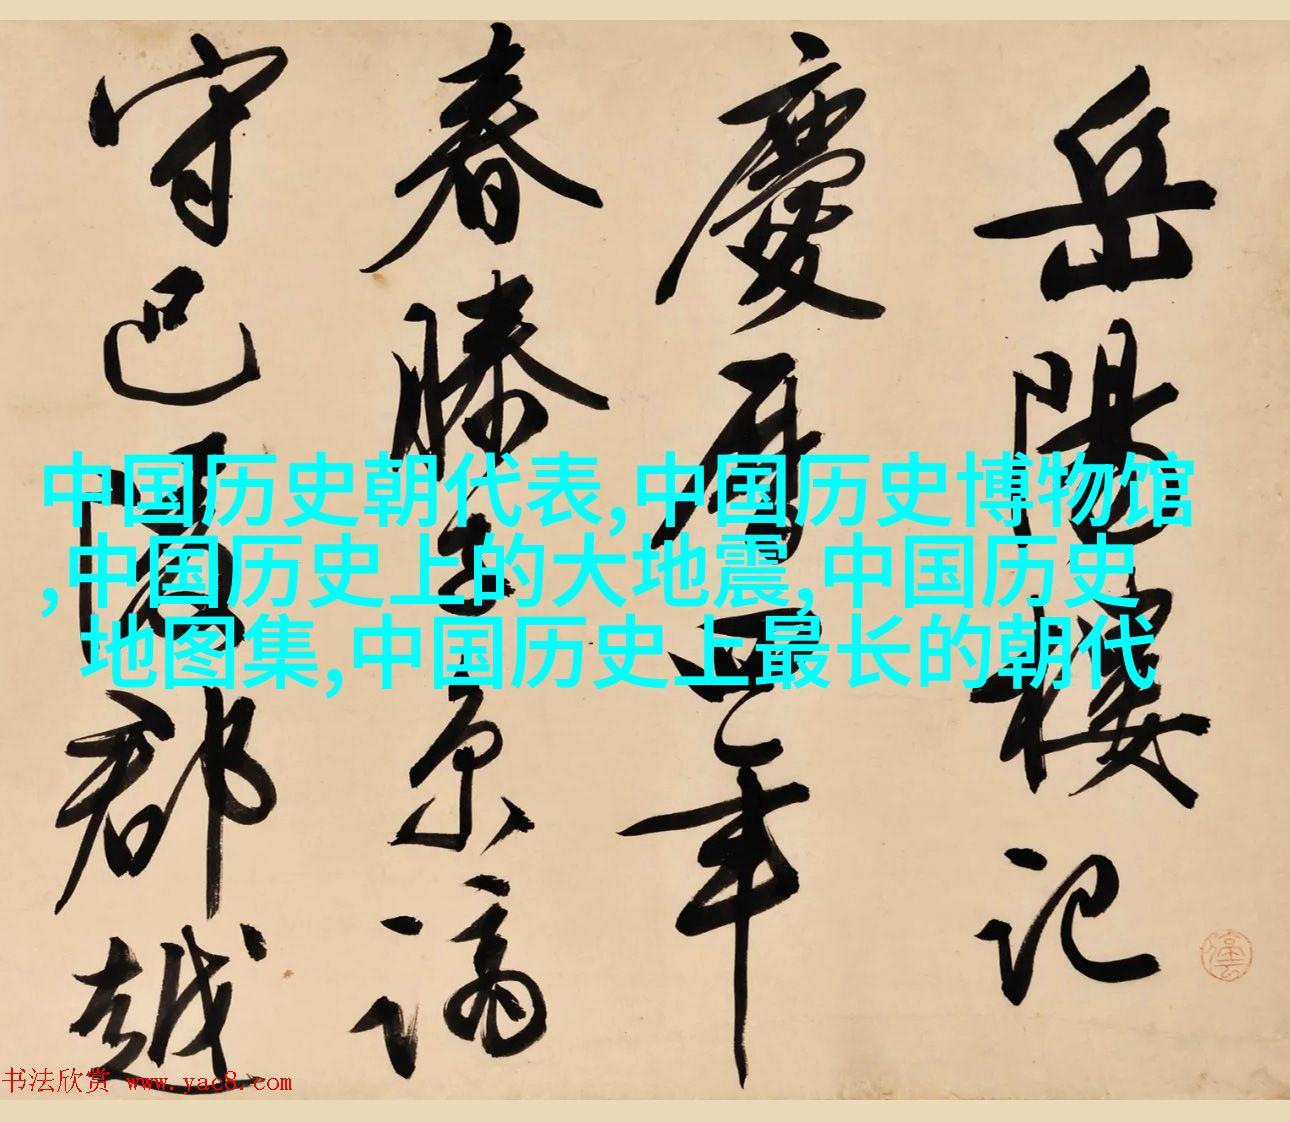 岳陽樓記
慶曆四年
春滕子京謫
守巴陵郡越
中国历史朝代表,中国历史博物馆
,中国历史上的大地震,中国历史
地图集,中国历史上最长的朝代
书法欣赏 www.yac8.com